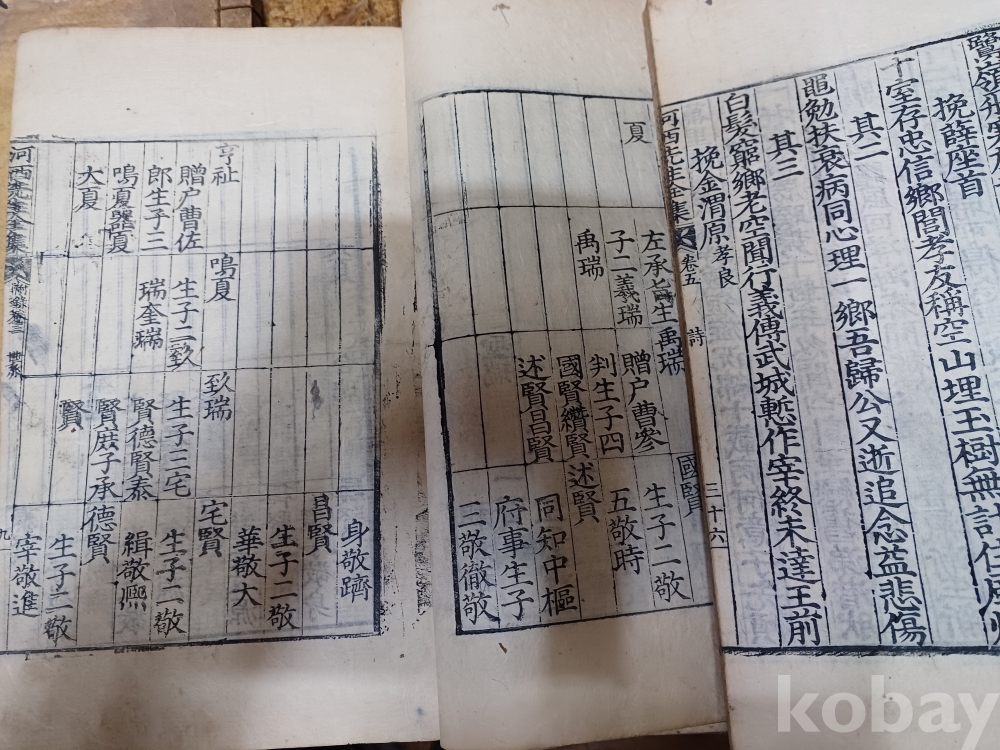 挽薛座首
十室存忠信鄉閭孝友稱空山埋玉樹無計
其二
黽勉扶衰病同心理一鄉吾歸公又逝追念益悲傷
其三
白髮窮鄉老空聞行義傳武城慙作宰終未達王前
挽金渭原孝良
河西先生全集 卷五 詩 三十六
夏
左承旨生
子二義瑞
禹瑞
禹瑞
贈户曹參
判生子四
國賢纘賢
述賢昌賢
國賢
生子二敬
五敬時
述賢
同知中樞
府事生子
三敬徹敬
亨祉
贈户曹佐
郎生子三
鳴夏器夏
大夏
鳴夏
生子二致
瑞奎瑞
致瑞
生子三宅
賢德賢泰
賢庶子承
賢
身敬躋
昌賢
生子二敬
華敬大
宅賢
生子二敬
緝敬熙
德賢
生子二敬
宰敬進
河西先生全集 附錄卷三 世系 九
kobay